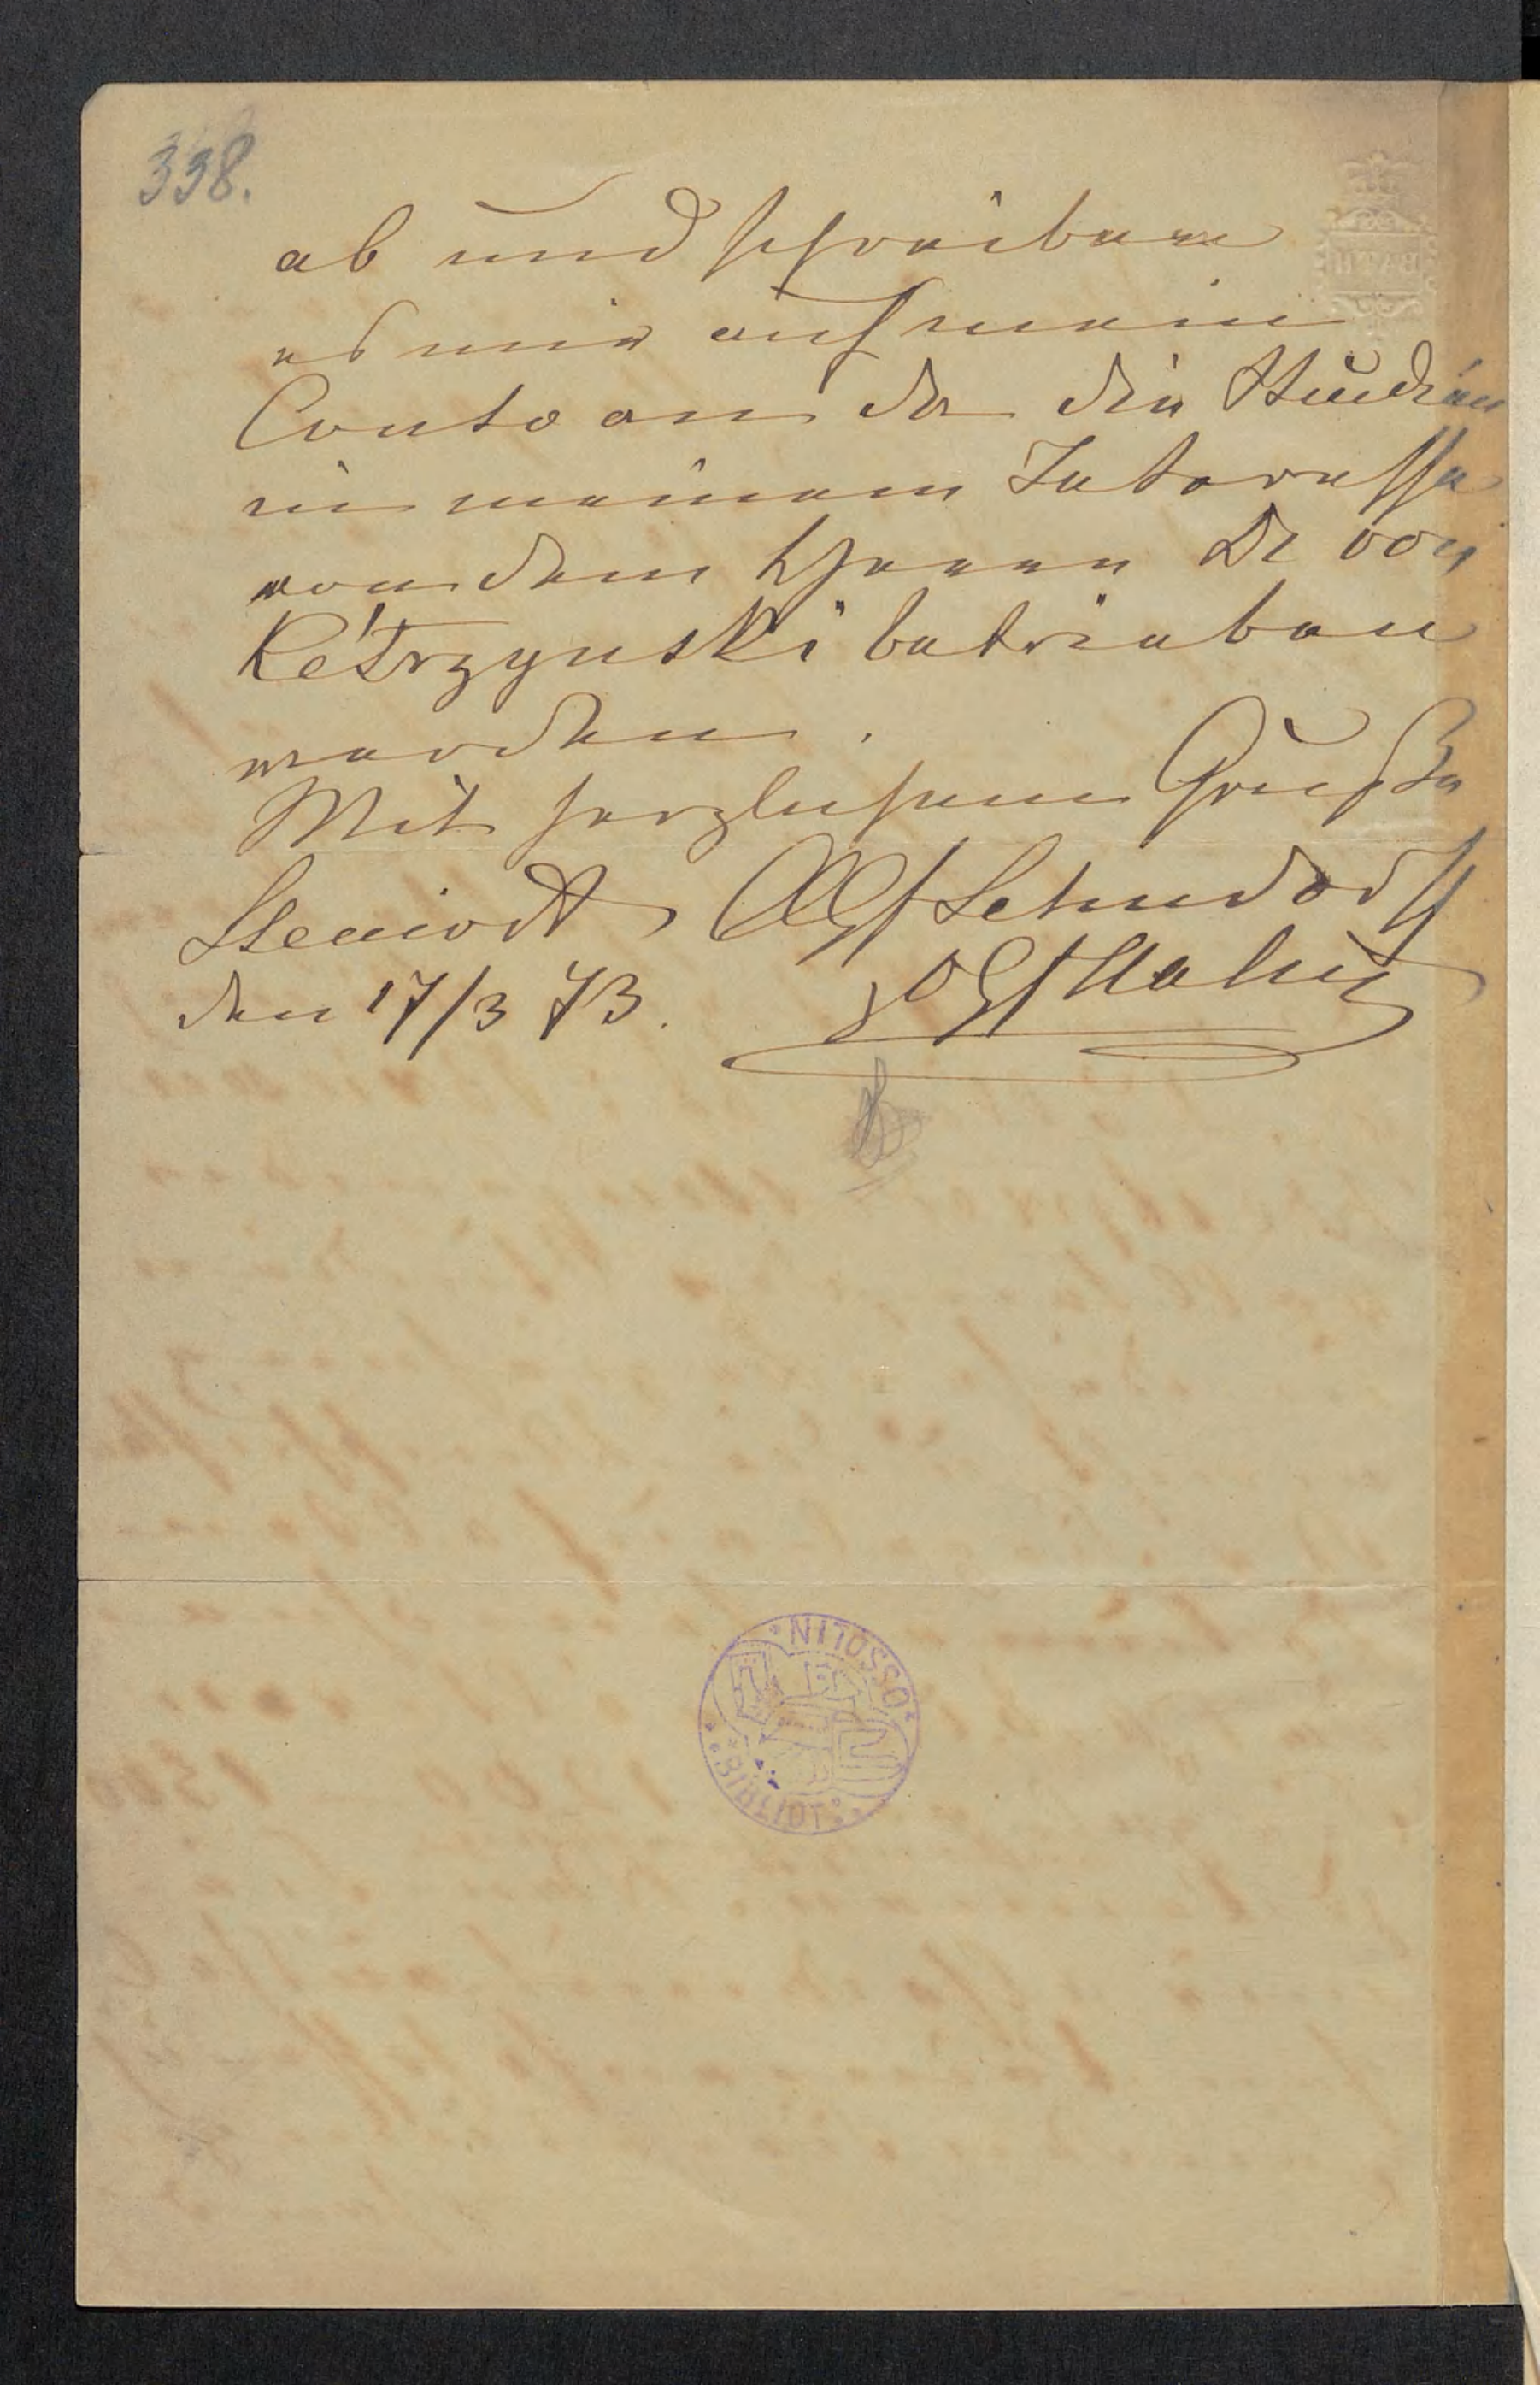 338.
ab und schreiben
es mir auf mein
Conto an da die Studien
in meinem Interesse
von dem Herren Dr von
Kétrzynski betrieben
werden.
Mit herzlichem Gruße
Steinort, Lehndorff
den 17/3 73.
BATH
OSSOLIN
BIBLIOT